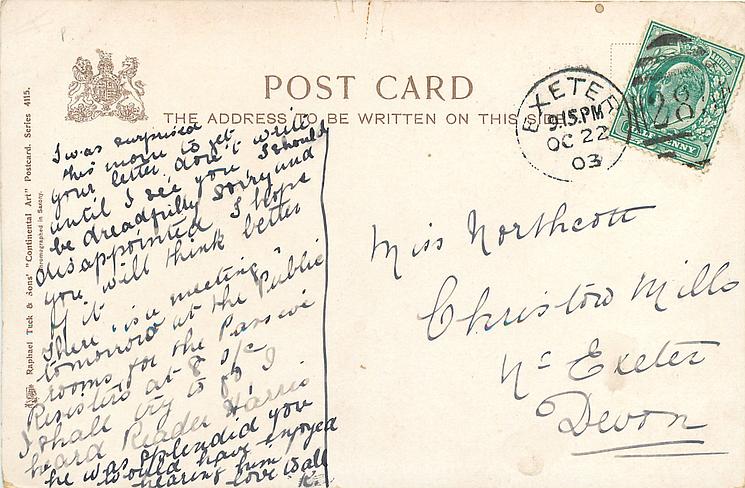 POST CARD
THE ADDRESS TO BE WRITTEN ON THIS SIDE
Raphael Tuck & Sons' "Continental Art" Postcard. Series 4115.
Chromographed in Saxony.
EXETER
9.15.PM
OC 22
03
28
I was surprised
this morn to get
your letter don't write
until I see you I should
be dreadfully sorry and
disappointed I hope
you will think better
of it
There is a meeting
tomorrow at the Public
rooms for the Passive
Resisters at 8 o/c
I shall try to go I
heard Reader Harris
he was splendid you
would have enjoyed
hearing him
love to all
Miss Northcott
Christow Mills
Nr Exeter
Devon